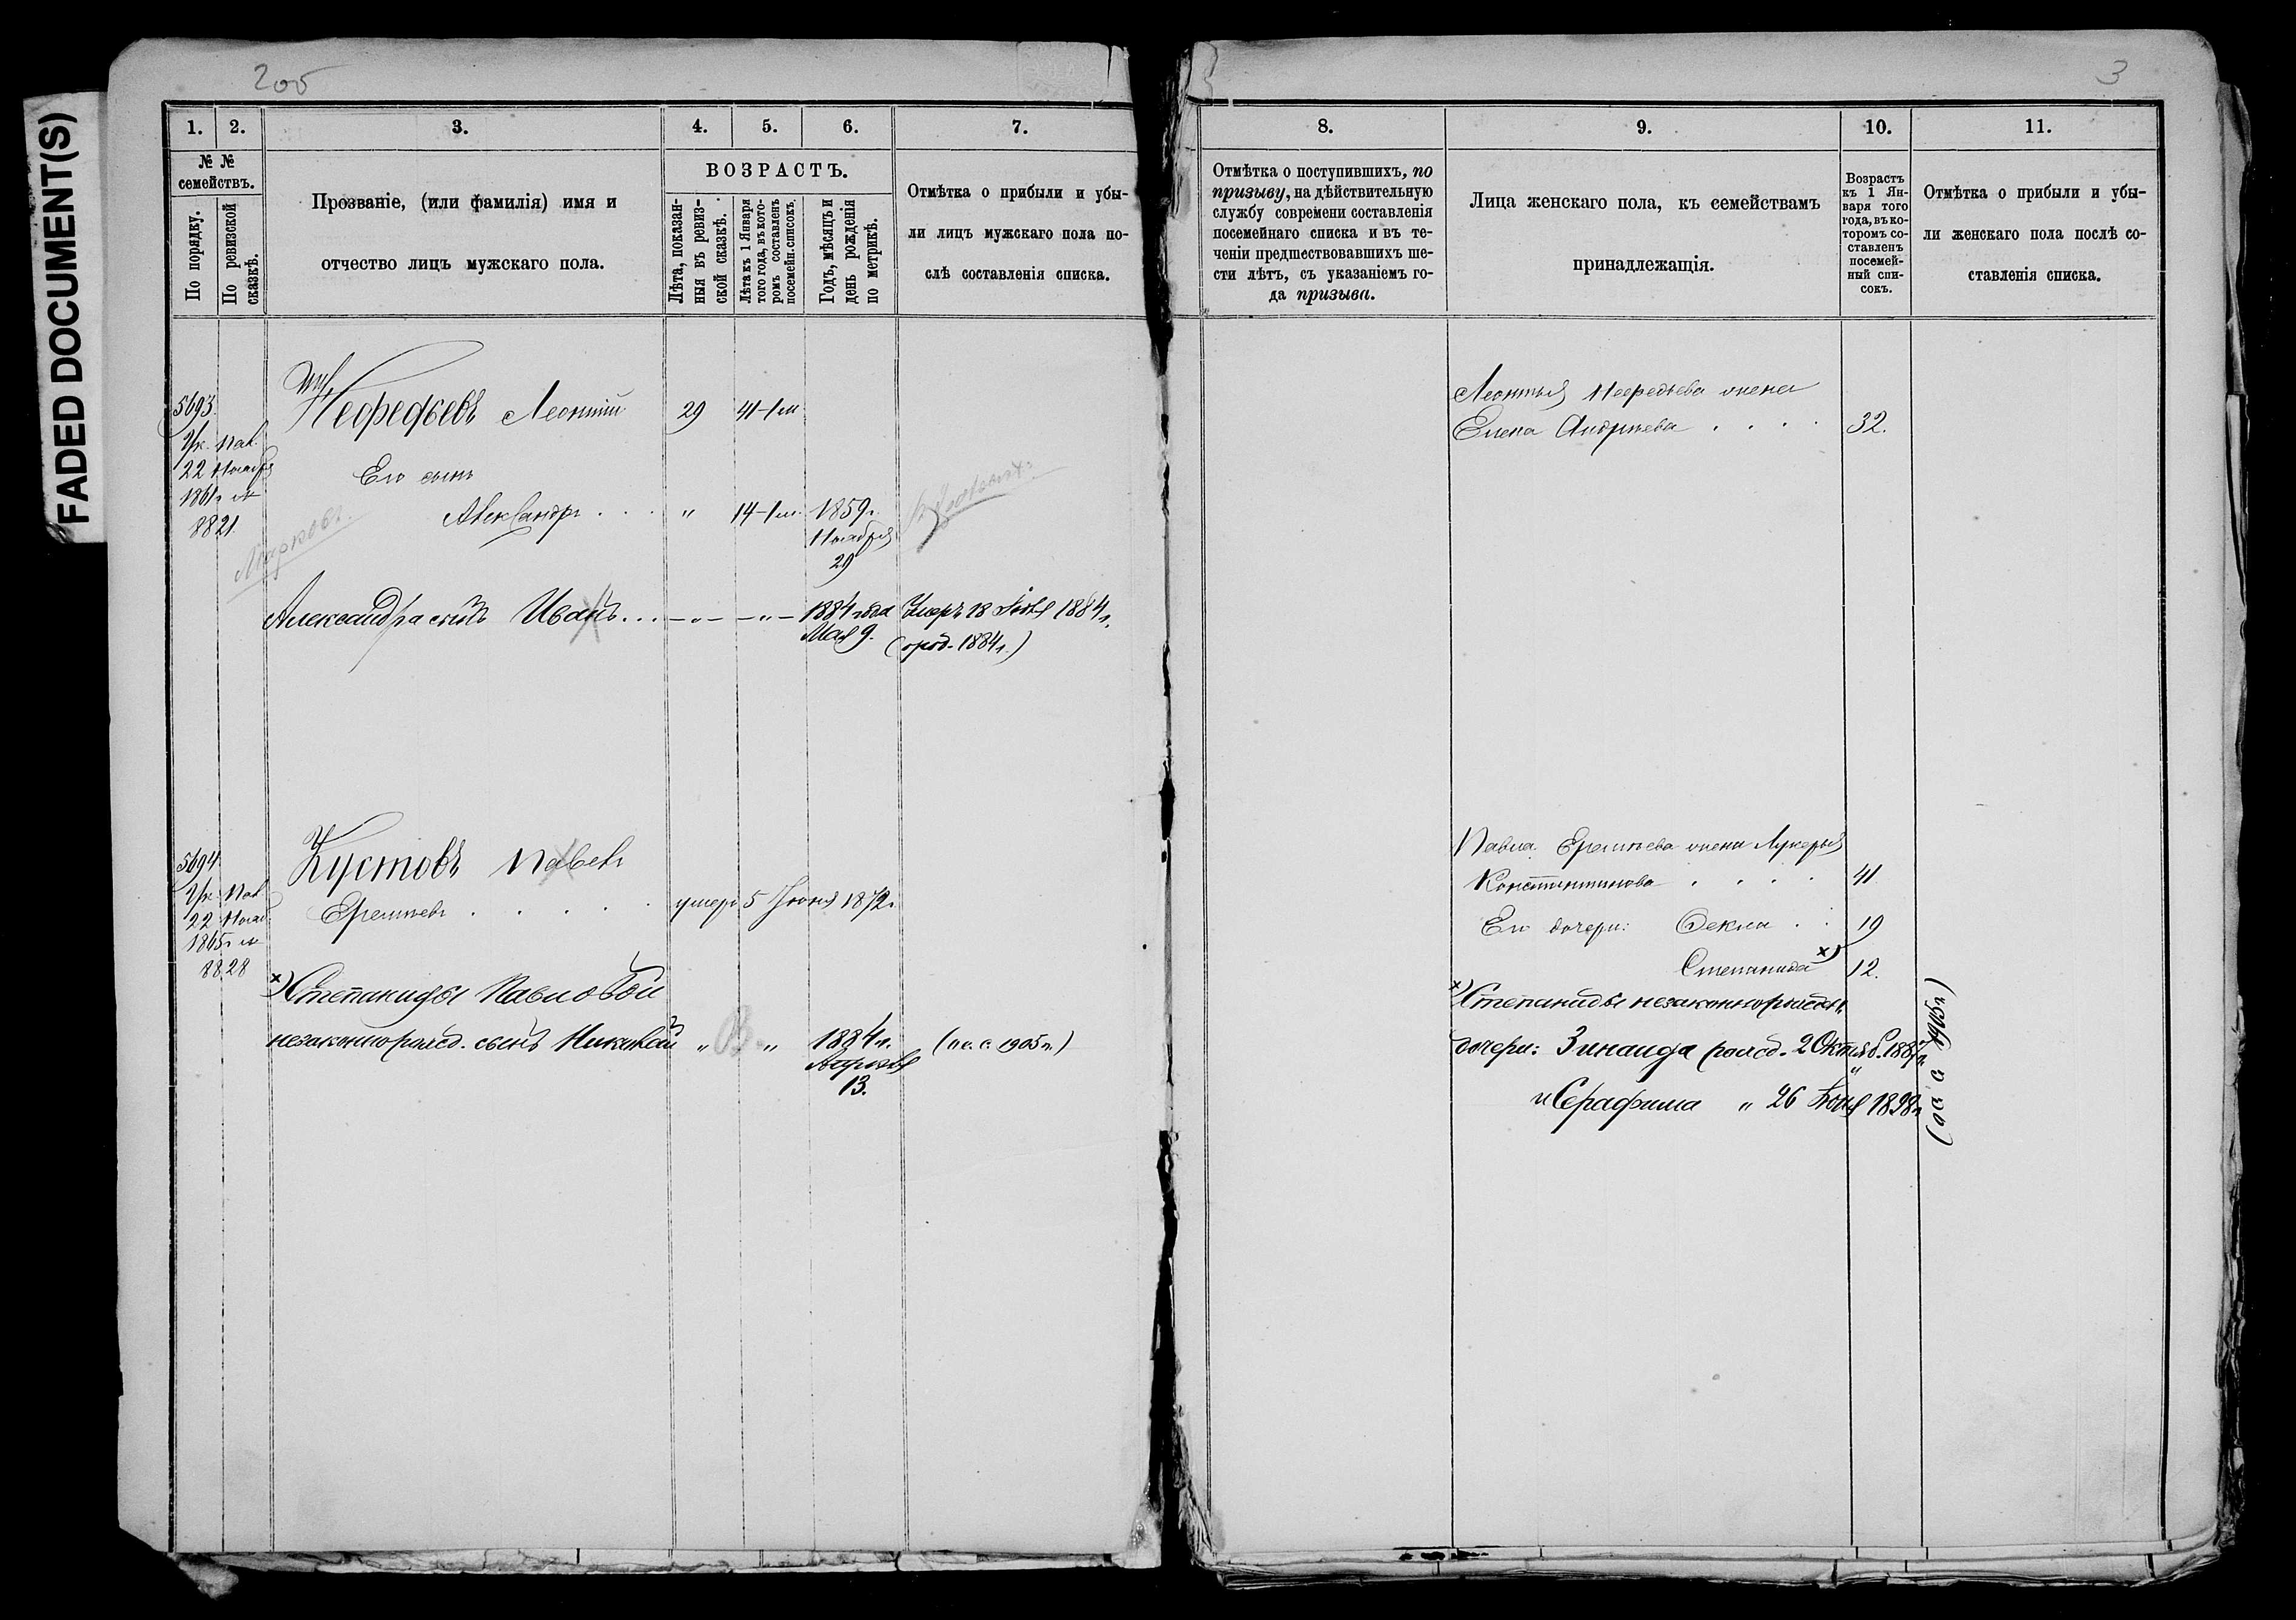 FADED DOCUMENT(S)
205
3
1. 2. 3. 4. 5. 6. 7.
№ №
семействъ.
По порядку.
По ревизской
сказкѣ.
Прозваніе, (или фамилія) имя и
отчество лицъ мужскаго пола.
ВОЗРАСТЪ.
Лѣта, показан-
ныя въ ревиз-
ской сказкѣ.
Лѣта къ 1 Января
того года, въ кото-
ромъ составленъ
посемейн. списокъ.
Годъ, мѣсяцъ и
день рожденія
по метрикѣ.
Отмѣтка о прибыли и убы-
ли лицъ мужскаго пола по-
слѣ составленія списка.
5693.
22 Ноября
1861г №
8821.
Нефедьевъ Леонтій 29 41-1м
Его сынъ
Александръ . . . " 14-1м. 1859г.
Ноября
29
Марковъ.
Александра сынъ Иванъ... —"— —"— 1884 года Умеръ 18 1884г.
Мая 9. 1884г.)
5694
22 Нояб.
1865г №
8828
Кустовъ Павелъ
Еремѣевъ . . . . . умеръ 5 Іюня 1872г.
x) Степаниды Павловой
незаконнорожд. сынъ Николай " " 1884г. 1905г.)
Апрѣля
13.
8. 9. 10. 11.
Отмѣтка о поступившихъ, по
призыву, на дѣйствительную
службу современи составленія
посемейнаго списка и въ те-
ченіи предшествовавшихъ ше-
сти лѣтъ, съ указаніемъ го-
да призыва.
Лица женскаго пола, къ семействамъ
принадлежащія.
Возрастъ
къ 1 Ян-
варя того
года, въ ко-
торомъ со-
ставленъ
посемей-
ный спи-
сокъ.
Отмѣтка о прибыли и убы-
ли женскаго пола послѣ со-
ставленія списка.
Леонтья Нефедьева жена
Елена Андреева . . . . 32.
Павла Еремѣева жена Лукерья
Константинова . . . . 41
Его дочери: Фекла . . 19
Степанида x) 12.
x) Степаниды незаконнорожден.
дочери: Зинаида рожд. 2 Октяб. 1887г.
и Серафима " 26 1898г.
1905г.)